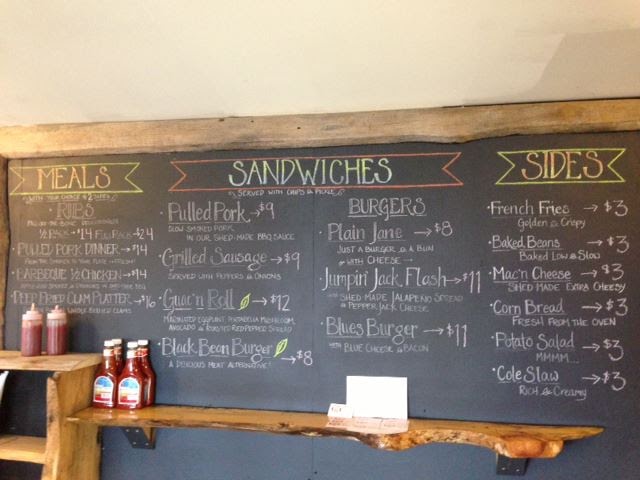 MEALS
WITH YOUR CHOICE of 2 SIDES
RIBS
FALL OFF THE BONE
1/2 RACK $14 FULL RACK $24
PULLED PORK DINNER → $14
FROM THE SMOKER TO YOUR PLATE
BARBEQUE 1/2 CHICKEN → $14
DEEP FRIED CLAM PLATTER → $16
WHOLE BELLIED CLAMS
SANDWICHES
SERVED WITH CHIPS & PICKLE
· Pulled Pork → $9
SLOW SMOKED PORK
IN OUR SHED-MADE BBQ SAUCE
· Grilled Sausage → $9
SERVED WITH PEPPERS & ONIONS
· Guac'n Roll → $12
MARINATED EGGPLANT, PORTABELLA MUSHROOM,
AVOCADO & ROASTED RED PEPPER SPREAD
· Black Bean Burger → $8
A DELICIOUS MEAT ALTERNATIVE!
BURGERS
· Plain Jane → $8
JUST A BURGER & A BUN
WITH CHEESE
· Jumpin' Jack Flash → $11
WITH SHED MADE JALAPEÑO SPREAD
& PEPPER JACK CHEESE
· Blues Burger → $11
WITH BLUE CHEESE & BACON
SIDES
· French Fries → $3
Golden & Crispy
· Baked Beans → $3
BAKED LOW & SLOW
· Mac'n Cheese → $3
SHED MADE EXTRA CHEESY
· Corn Bread → $3
FRESH FROM THE OVEN
· Potato Salad → $3
MMMM...
· Cole Slaw → $3
RICH & Creamy